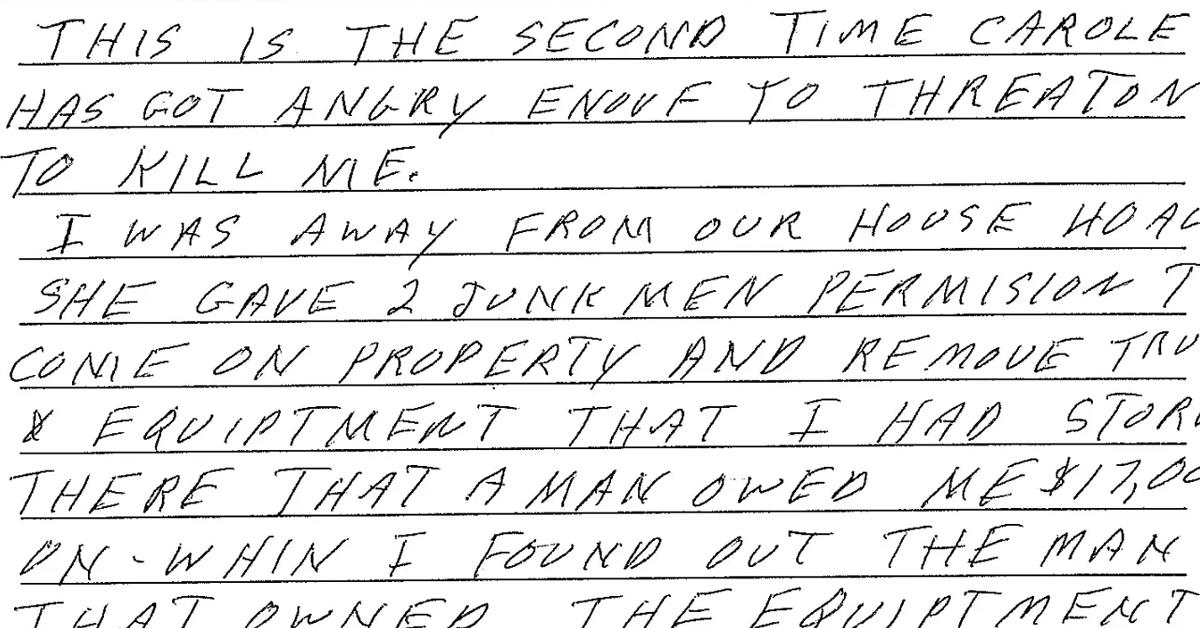 THIS IS THE SECOND TIME CAROLE
HAS GOT ANGRY ENOUF TO THREATON
TO KILL ME.
I WAS AWAY FROM OUR HOUSE
SHE GAVE 2 JUNK MEN PERMISION T
COME ON PROPERTY AND REMOVE TRU
& EQUIPTMENT THAT I HAD STOR
THERE THAT A MAN OWED ME $17,00
ON - WHIN I FOUND OUT THE MAN
THAT OWNED THE EQUIPTMENT